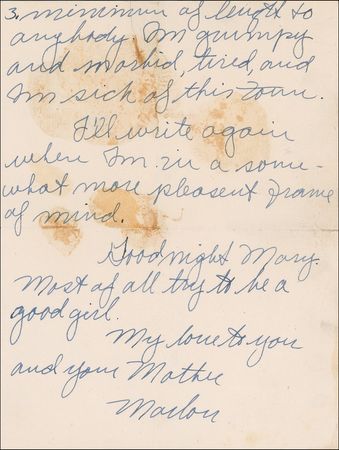 3. minimum of length to
anybody. Im grumpy
and morbid, tired, and
Im sick of this town.
I'll write again
when Im in a some-
what more pleasent frame
of mind.
Goodnight Mary.
Most of all try to be a
good girl.
My love to you
and your Mother
Marlon